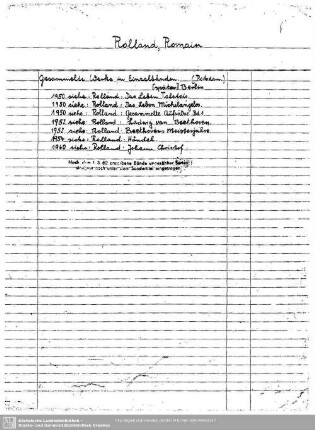 Rolland, Romain
Gesammelte Werke in Einzelbänden. (Potsdam.)
(später) Berlin
1950 siehe: Rolland: Das Leben Tolstois.
1950 siehe: Rolland: Das Leben Michelangelos.
1950 siehe: Rolland: Gesammelte Aufsätze Bd 1
1952 siehe: Rolland: Ludwig van Beethoven.
1952 siehe: Rolland: Beethovens Meisterjahre.
1954 siehe: Rolland: Händel.
1960 siehe: Rolland: Johann Christof.
Nach dem 1. 3. 62 erschienene Bände ungezählter Serien
Sächsische Landesbibliothek -
Staats- und Universitätsbibliothek Dresden